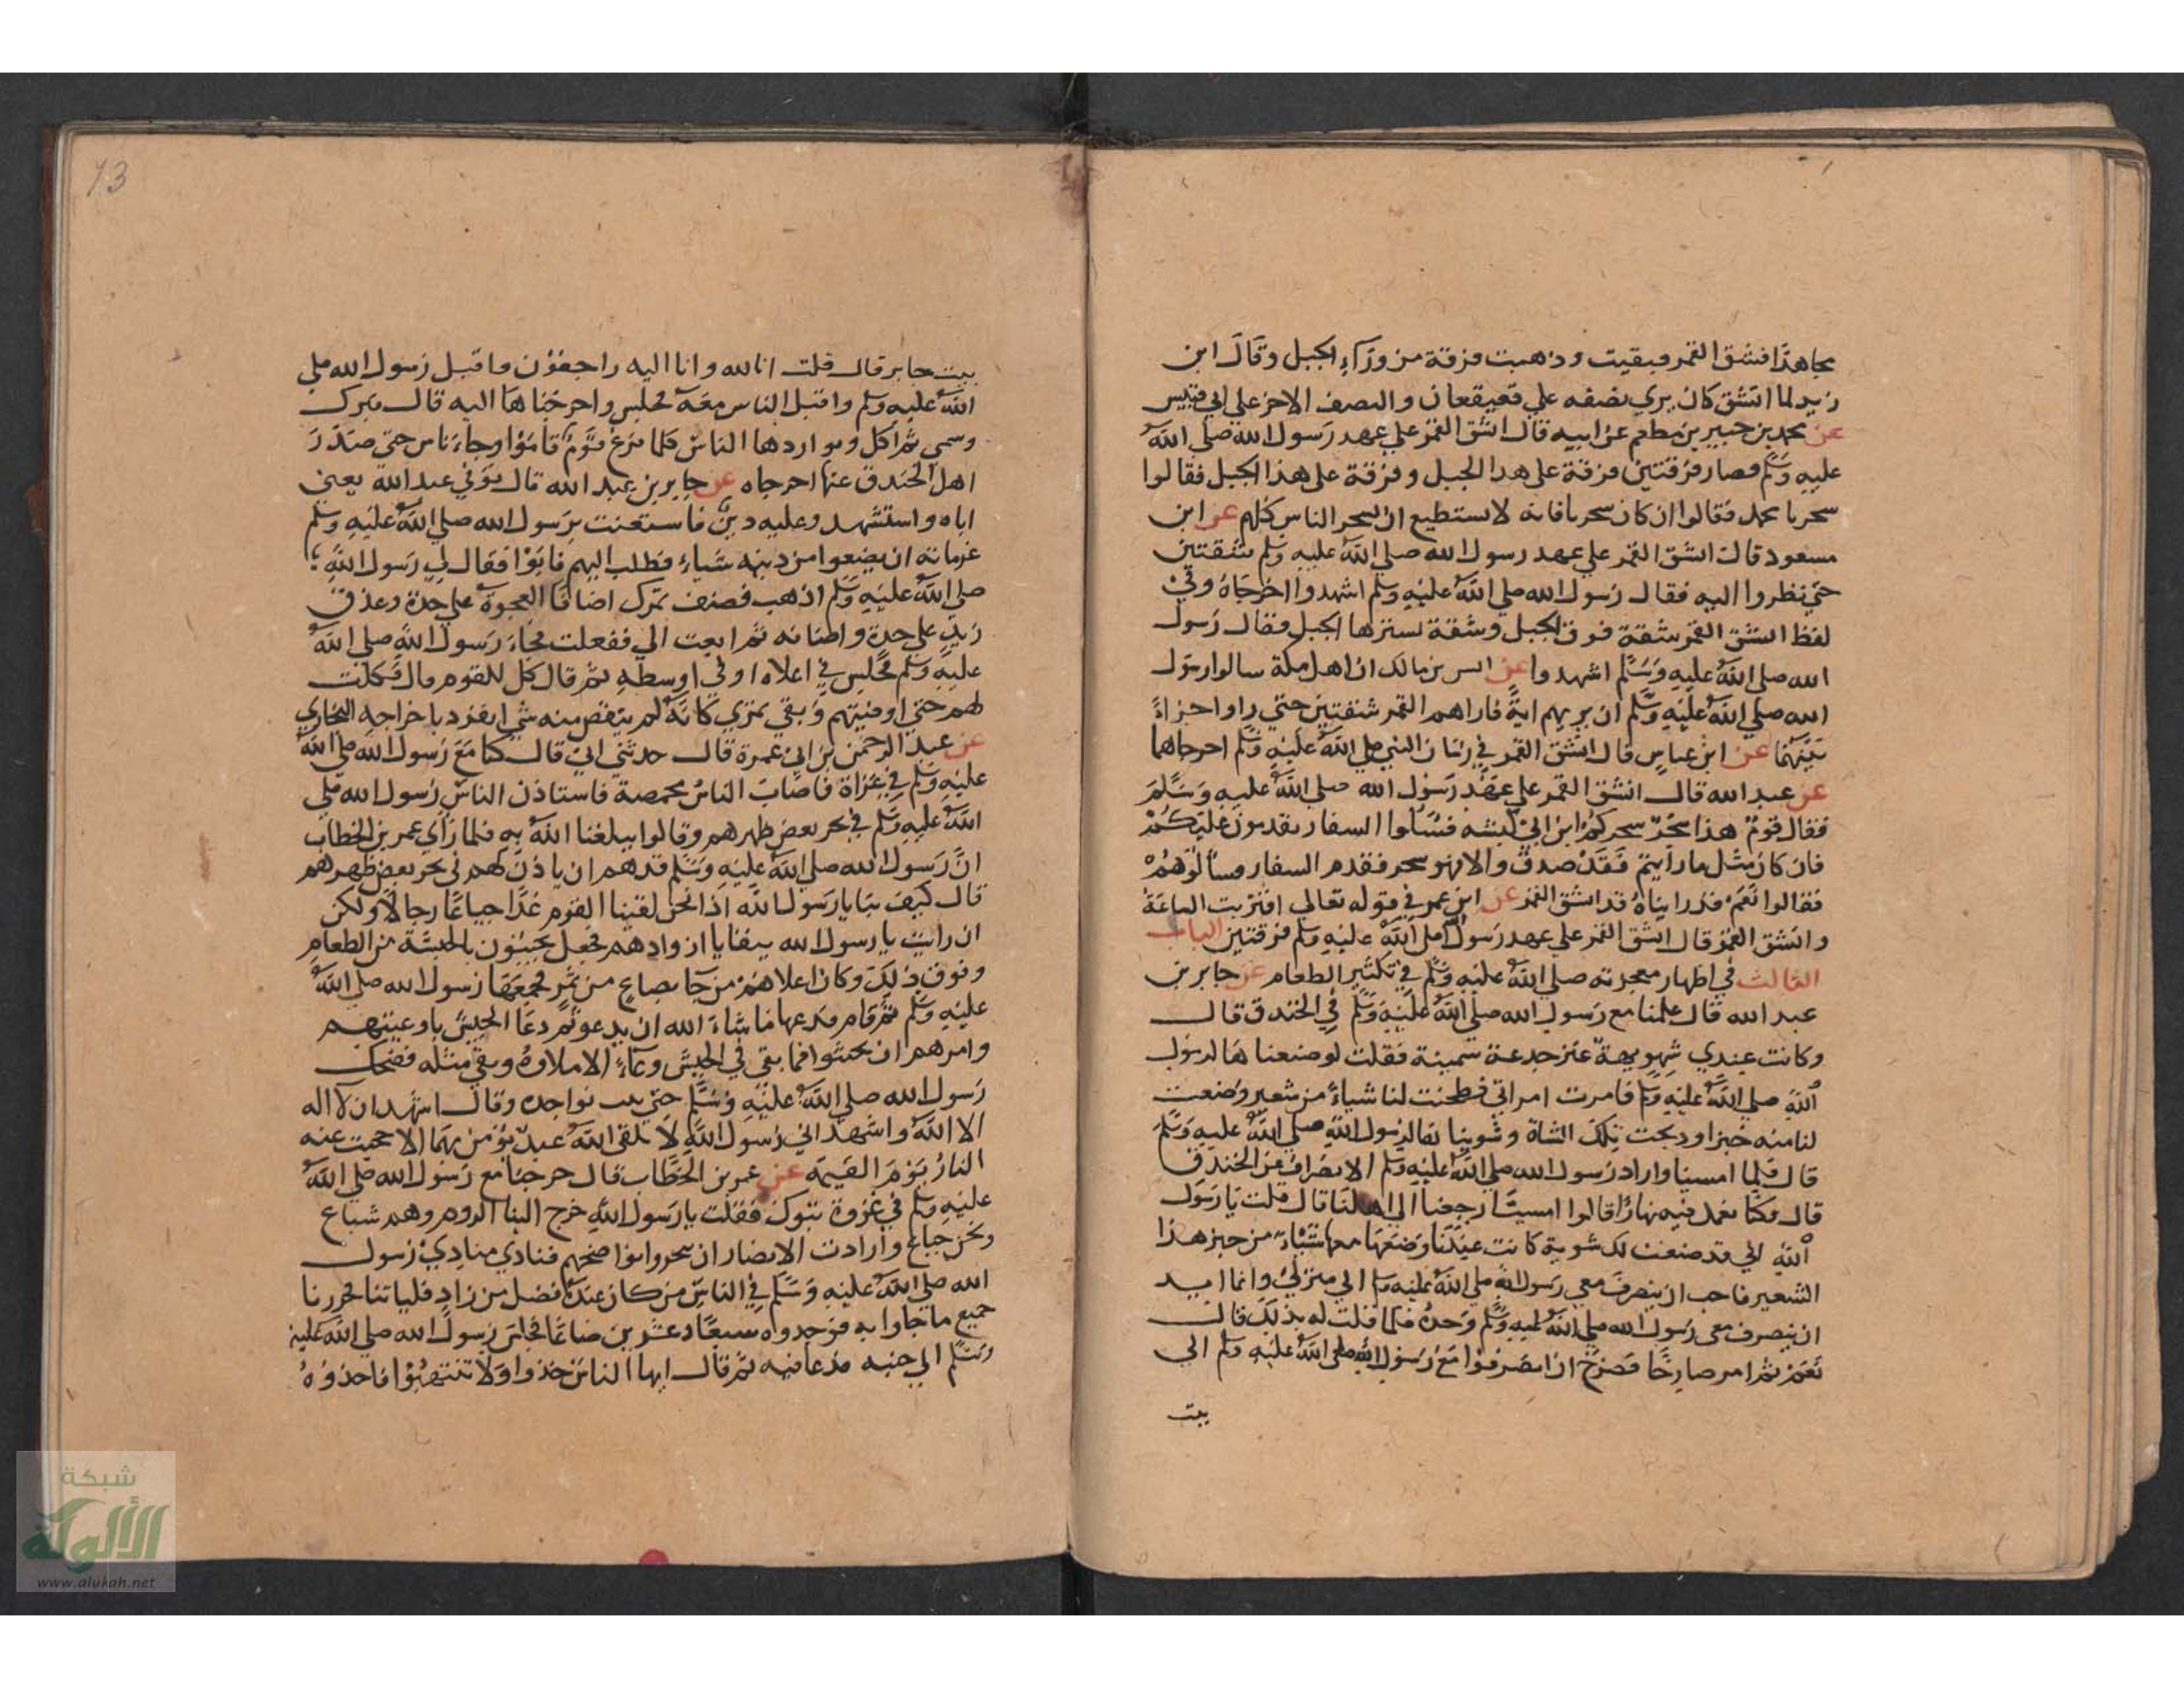 مجاهدا فشق القمر فبقيت وذهبت فرقة من وراء الجبل وقال ابن
زيد لما انشق كان يري نصفه علي قعيقعان والنصف الاخر علي ابي قبيس
عن محمد بن جبير بن مطعم عن ابيه قال انشق القمر علي عهد رسول الله صلي الله
عليه وسلم فصار فرقتين فرقة علي هدا الجبل وفرقة علي هذا الجبل فقالوا
سحرنا محمد فقالوا ان كان سحرنا فانه لا يستطيع ان يسحر الناس كلهم عن ابن
مسعود قال انشق القمر علي عهد رسول الله صلي الله عليه وسلم شقتين
حتي نظروا اليه فقال رسول الله صلي الله عليه وسلم اشهدوا اخرجاه وفي
لفظ انشق القمر شقة فوق الجبل وشقة يسترها الجبل فقال رسول
الله صلي الله عليه وسلم اشهدوا عن انس بن مالك ان اهل مكة سالوا رسول
الله صلي الله عليه وسلم ان يريهم اية فاراهم القمر شقتين حتي راوا حراء
بينهما عن ابن عباس قال انشق القمر في زمان النبي صلي الله عليه وسلم اخرجاهما
عن عبد الله قال انشق القمر علي عهد رسول الله صلي الله عليه وسلم
فقال قوم هذا سحر سحركم ابن ابي كبشه فسالوا السفار يقدمون عليكم
فان كان مثل ما رايتم فقد صدق والا فهو سحر فقدم السفار فسالوهم
فقالوا نعم قد رايناه قد انشق القمر عن ابن عمر في قوله تعالي اقتربت الساعة
وانشق القمر قال انشق القمر علي عهد رسول الله صلي الله عليه وسلم فرقتين الباب
الثالث في اظهار معجزته صلي الله عليه وسلم في تكثير الطعام عن جابر بن
عبد الله قال علمنا مع رسول الله صلي الله عليه وسلم في الخندق قال
وكانت عندي شويهة عنز جدعة سمينة فقلت لو صنعناها لرسول
الله صلي الله عليه وسلم فامرت امراتي فطحنت لنا شياء من شعير وصنعت
لنا منه خبزا ودبحت تلك الشاة وشويناها لرسول الله صلي الله عليه وسلم
قال فلما امسينا واراد رسول الله صلي الله عليه وسلم الانصراف عن الخندق
قال وكنا نعمل فيه نهارا فالوا امسينا رجعنا الي اهلنا قال قلت يا رسول
الله اني قد صنعت لك شوية كانت عندنا وصنعنا معها شياء من خبز هذا
الشعير فاحب ان ينصرف معي رسول الله صلي الله عليه وسلم الي منزلي وانما اريد
ان ينصرف معي رسول الله صلي الله عليه وسلم وحده فلما قلت له بذلك قال
نعم ثم امر صارخا فصرخ ان انصرفوا مع رسول الله صلي الله عليه وسلم الي
بيت
73
بيت جابر قال قلت انا لله وانا اليه راجعون واقبل رسول الله صلي
الله عليه وسلم واقبل الناس معه فجلس واخرجناها اليه قال فبرك
وسمي ثم اكل وتواردها الناس كلما فرغ قوم قاموا وجاء ناس حتي صدر
اهل الخندق عنها اخرجاه عن جابر بن عبد الله قال توفي عبد الله يعني
اباه واستشهد وعليه دين فاستعنت برسول الله صلي الله عليه وسلم
غرمائه ان يضعوا من دينه شياء فطلب اليهم فابوا فقال لي رسول الله
صلي الله عليه وسلم اذهب فصنف تمرك اصنافا العجوة علي حدة وعذق
زيد علي حدة واصنافه ثم ابعث الي ففعلت فجاء رسول الله صلي الله
عليه وسلم فجلس في اعلاه او في اوسطه ثم قال كل للقوم قال فكلت
لهم حتي اوفيتهم وبقي تمري كانه لم ينقص منه شي انفرد باخراجه البخاري
عن عبد الرحمن بن ابي عمرة قال حدثني ابي قال كنا مع رسول الله صلي الله
عليه وسلم في غزاة فاصاب الناس مخمصة فاستاذن الناس رسول الله صلي
الله عليه وسلم في نحر بعض ظهرهم وقالوا يبلغنا الله به فلما راي عمر بن الخطاب
ان رسول الله صلي الله عليه وسلم قد هم ان ياذن لهم في نحر بعض ظهرهم
قال كيف بنا يا رسول الله اذا نحن لقينا القوم غدا جياعا رجالا ولكن
ان رايت يا رسول الله ببقايا ازوادهم فجعل يجيئون بالحثية من الطعام
وفوق ذلك وكان اعلاهم من جا بصاع من تمر فجمعها رسول الله صلي الله
عليه وسلم ثم قام فدعا ما شاء الله ان يدعو ثم دعا الجيش باوعيتهم
وامرهم ان يحتثوا فما بقي في الجيش وعاء الا ملاوه وبقي مثله فضحك
رسول الله صلي الله عليه وسلم حتي بدت نواجده وقال اشهد ان لا اله
الا الله واشهد اني رسول الله لا يلقي الله عبد يؤمن بهما الا حجبت عنه
النار يوم القيمة عن عمر بن الخطاب قال خرجنا مع رسول الله صلي الله
عليه وسلم في غزوة تبوك فقلت يا رسول الله خرج الينا الروم وهم شباع
ونحن جياع وارادت الانصار ان ينحروا نواضحهم فنادي منادي رسول
الله صلي الله عليه وسلم في الناس من كان عنده فضل من زاد فلياتنا فحررنا
جميع ما جاوا به فوجدوه سبعا وعشرين صاعا فجلس رسول الله صلي الله عليه
وسلم الي جنبه فدعا فيه ثم قال ايها الناس خذوا ولا تنتهبوا فاخذوه
شبكة
الألوكة
www.alukah.net